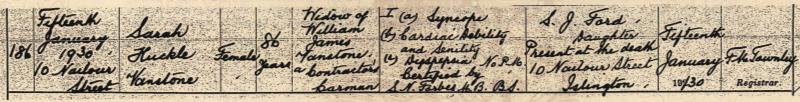 186
Fifteenth
January
1930
10 Nailour
Street
Sarah
Huckle
Vanstone
Female
86
years
Widow of
William
James
Vanstone,
a Contractors
Carman
I (a) Syncope
(b) Cardiac Debility
and Senility
(c) Dyspepsia N.P.M.
Certified by
S.N. Forbes M.B. B.S.
S. J. Ford,
Daughter
Present at the death
10 Nailour Street
Islington,
Fifteenth
January
1930
F. M. Townley
Registrar.